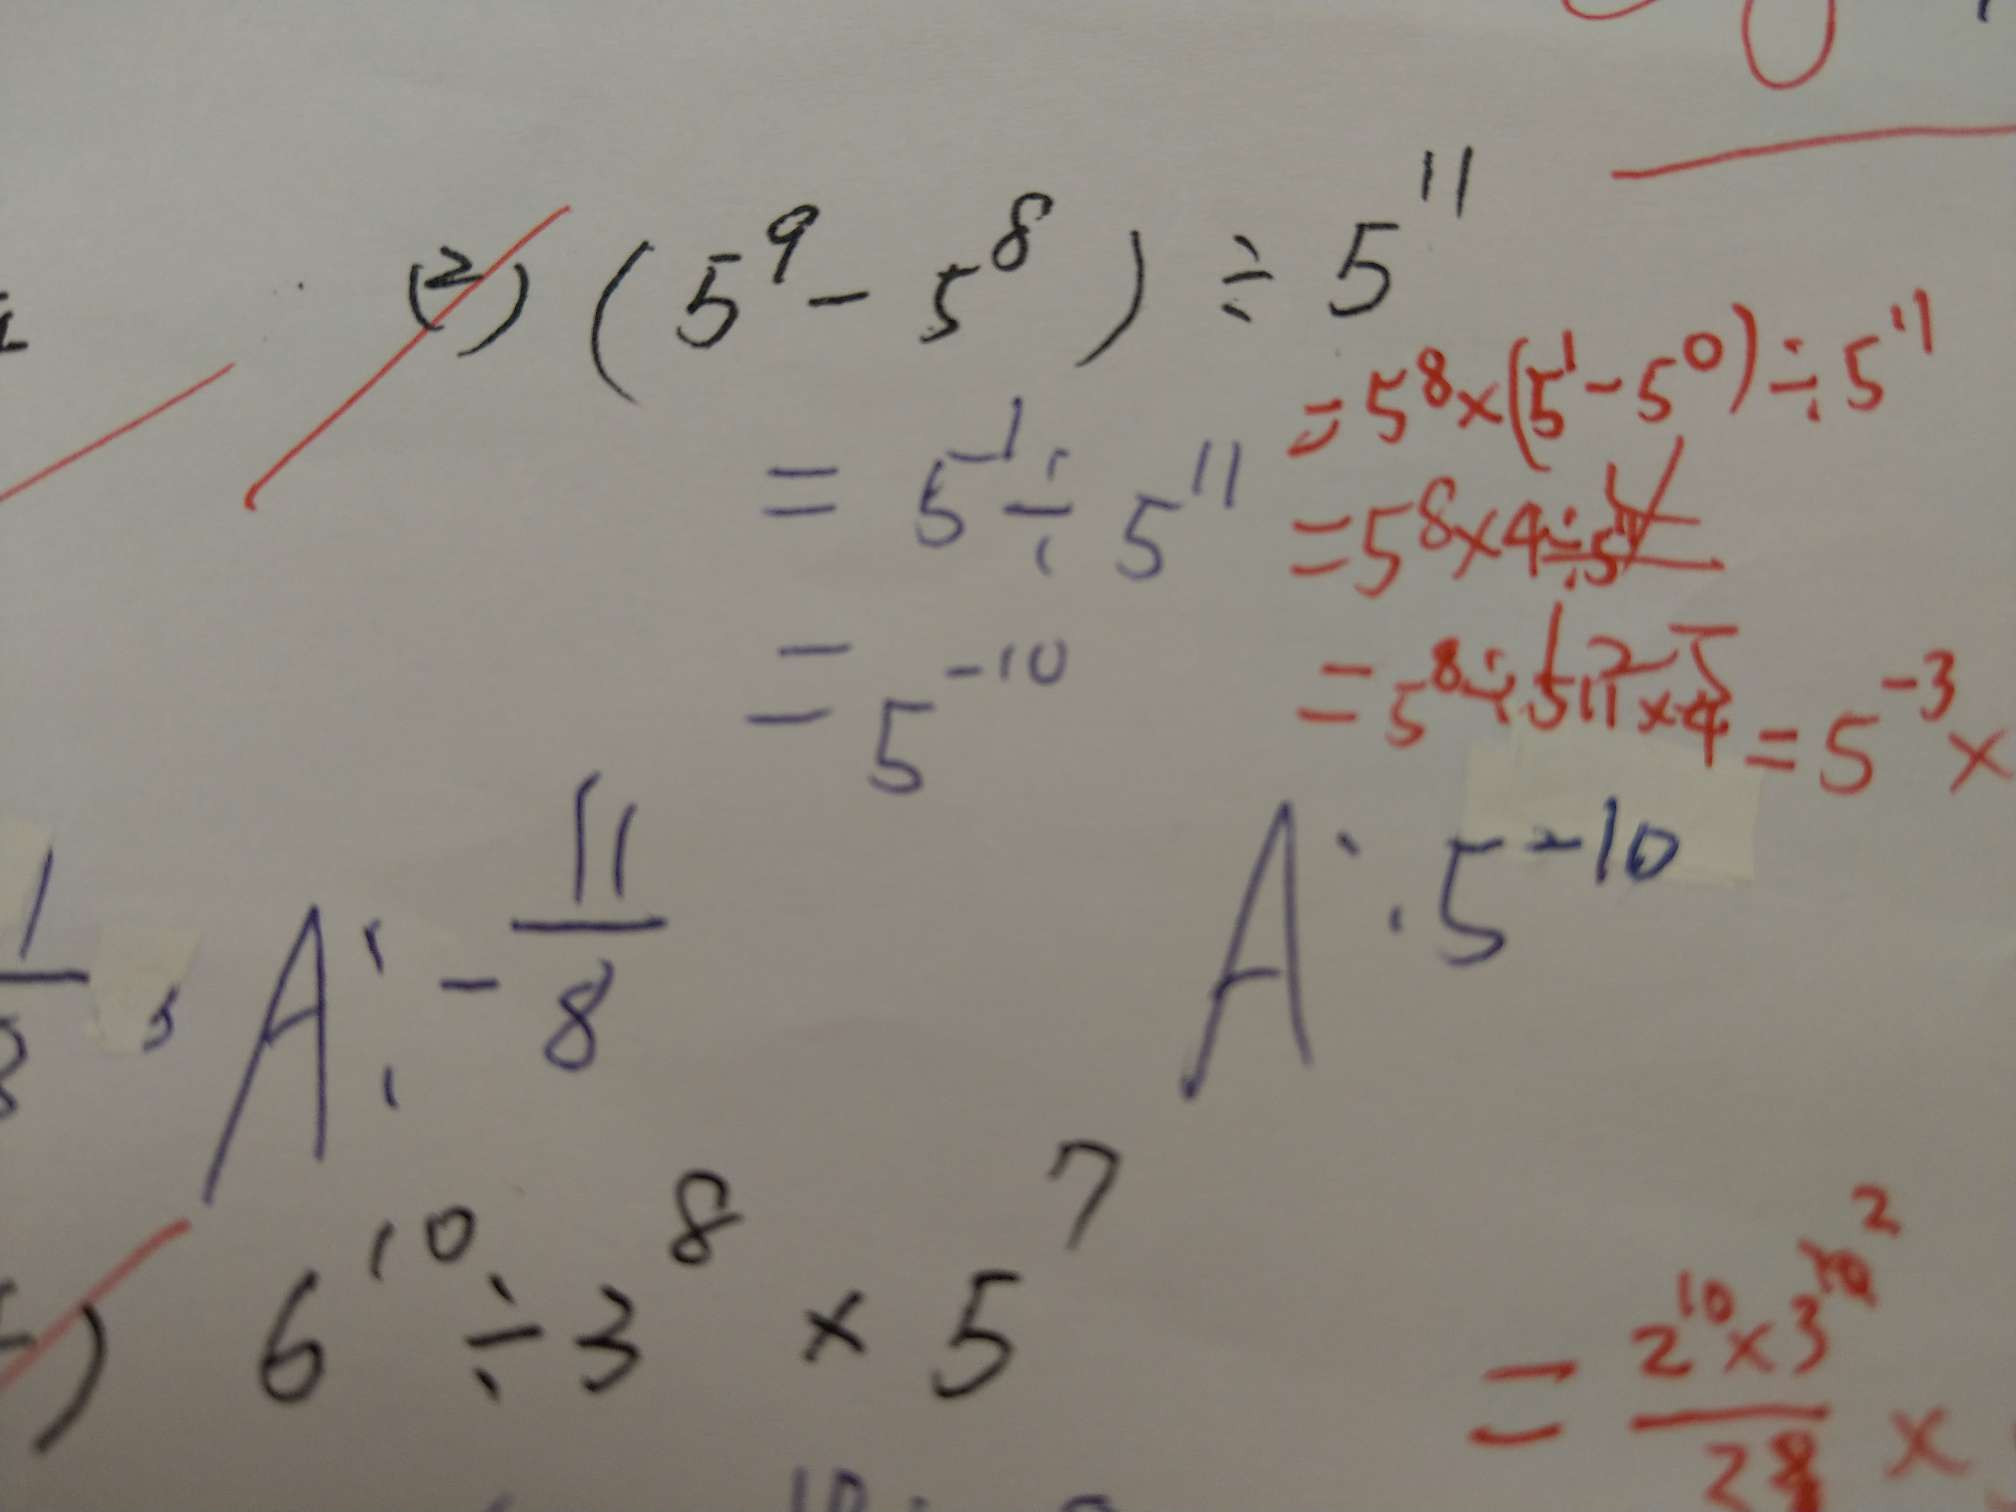 (2) (5⁹ - 5⁸) ÷ 5¹¹
= 5¹ ÷ 5¹¹
= 5⁻¹⁰
= 5⁸ × (5¹ - 5⁰) ÷ 5¹¹
= 5⁸ × 4
= 5⁸ ÷ 5¹¹ × 4 = 5⁻³ ×
A: -11/8
A: 5⁻¹⁰
) 6¹⁰ ÷ 3⁸ × 5⁷
= 2¹⁰ × 3² ×